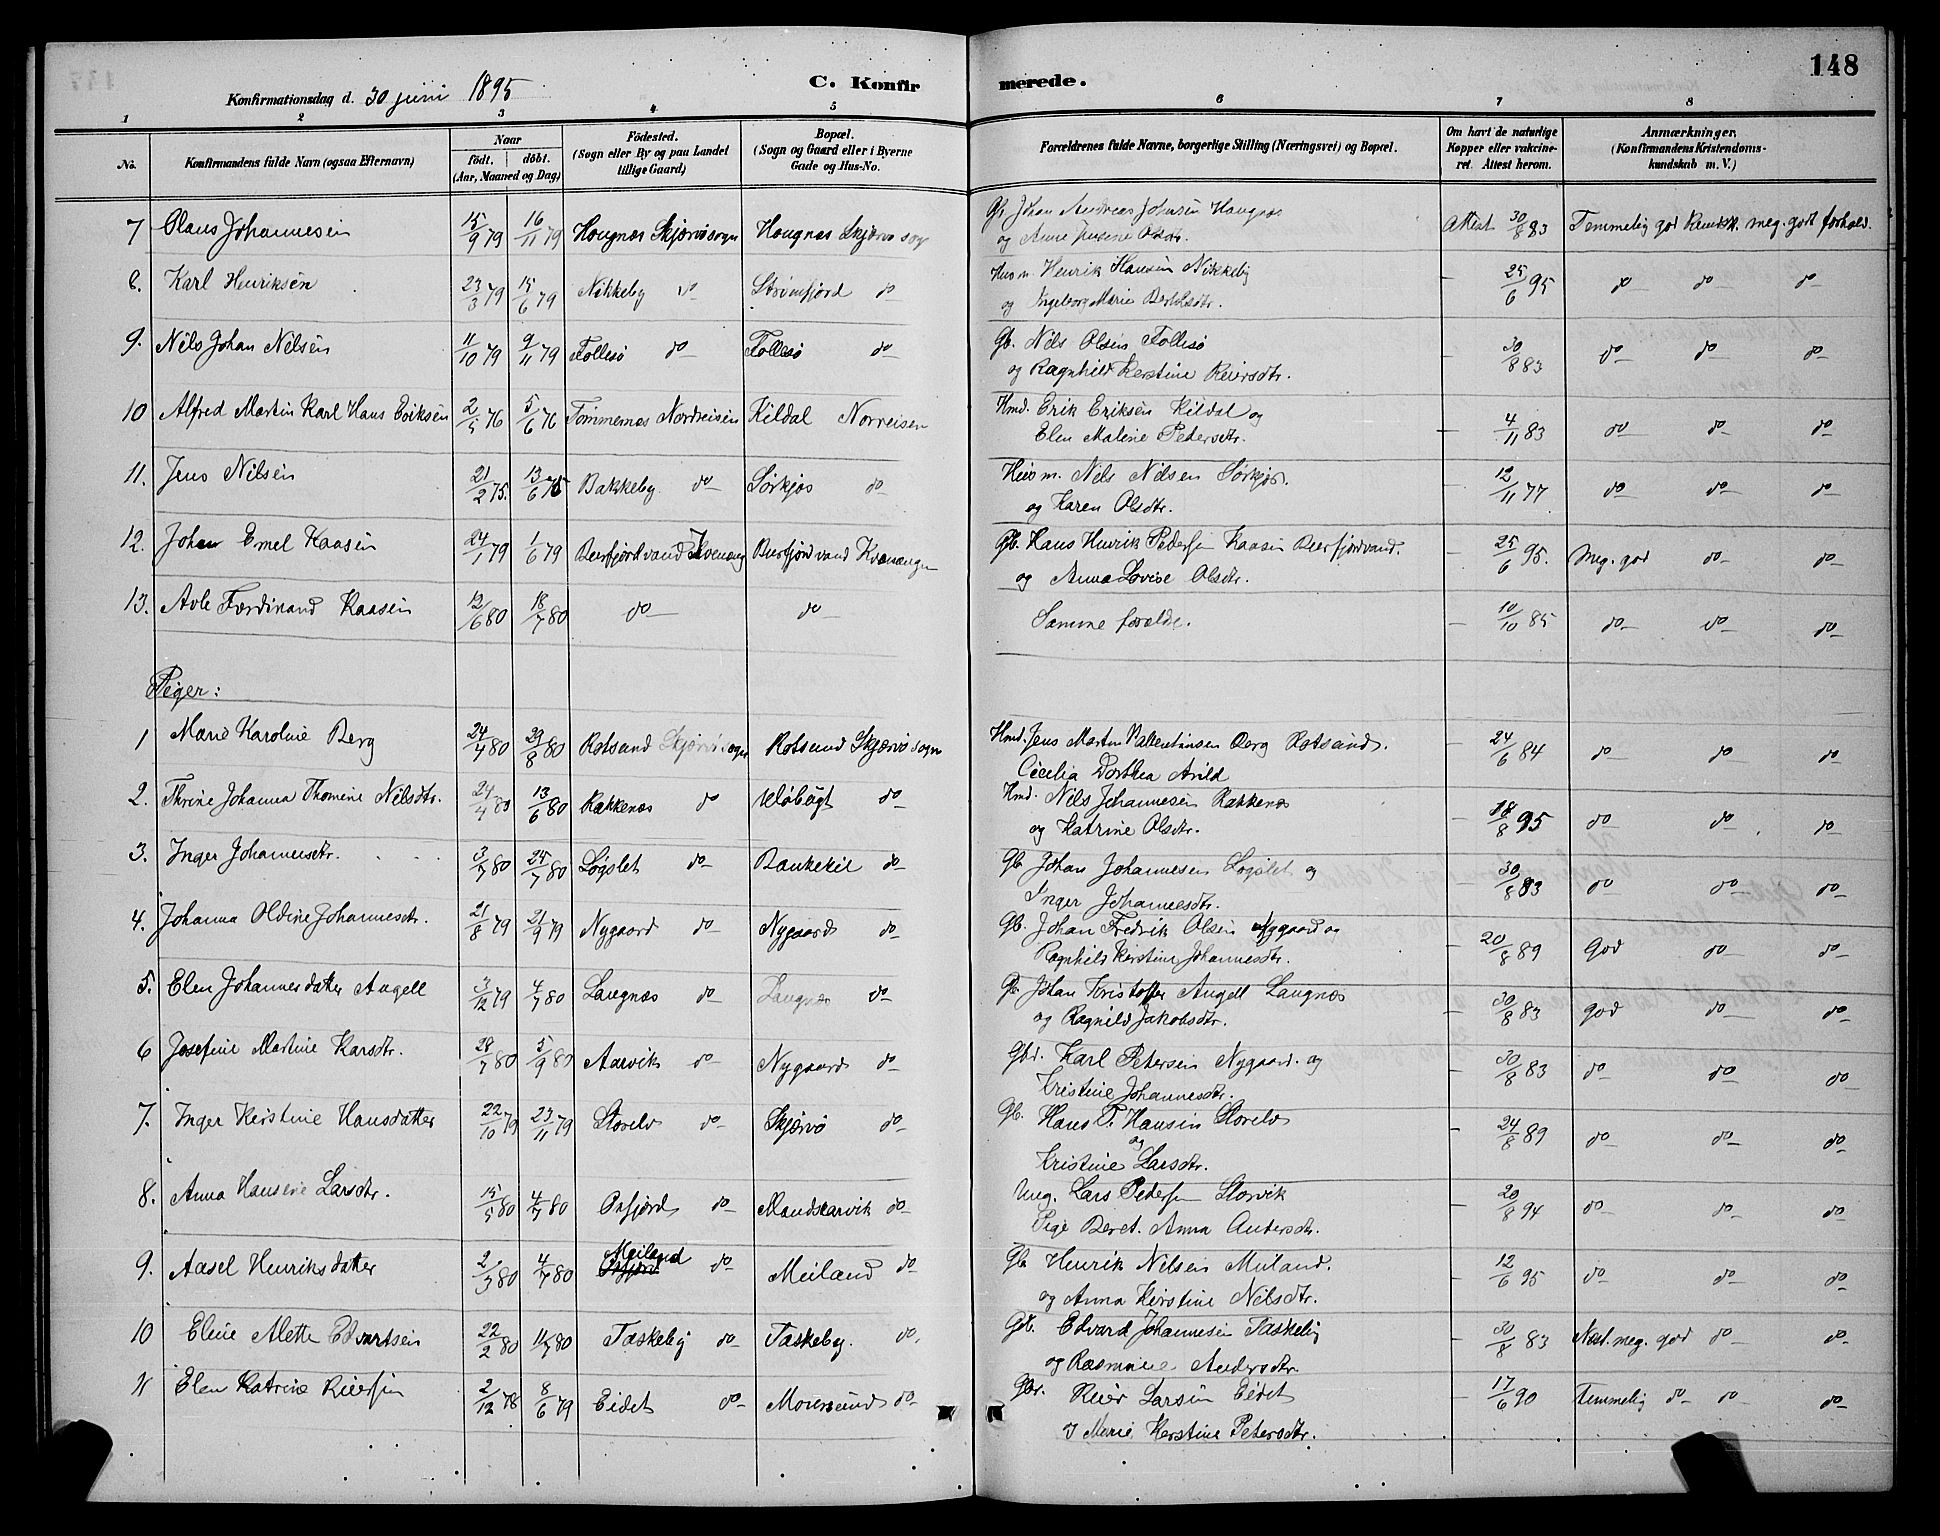 148
C. Konfir merede.
Konfirmationsdag d. 30 juni 1895
1 2 3 4 5 6 7 8
No. Konfirmandens fulde Navn (ogsaa Efternavn) Naar født. døbt. (Aar, Maaned og Dag) Fødested. (Sogn eller By og paa Landet tillige Gaard) Bopæl. (Sogn og Gaard eller i Byerne Gade og Hus-No. Forældrenes fulde Navne, borgerlige Stilling (Næringsvei) og Bopæl. Om havt de naturlige Kopper eller vakcineret. Attest herom. Anmærkninger. (Konfirmandens Kristendomskundskab m. V.)
7 Olaus Johannesen 15/9 79 16/11 79 Hougnæs Skjærvø sogn Hougnæs Skjærvø sog Gb. Johan Andreas Johnsen Hougnæs
og Anne Olsdtr. Attest 30/8 83 Temmelig god Kundsk. meg. godt forhold.
8. Karl Henriksen 23/3 79 15/6 79 Nikkeby do Strømfjord do Husm. Henrik Hansen Nikkeby
og Ingeborg Marie Bertelsdtr. - 25/6 95 do do do
9. Nils Johan Nilsen 11/10 79 9/11 79 Follesø do Follesø do Gb. Nils Olsen Follesø
og Ragnhild Kerstine Reiersdtr. - 30/8 83 do do do
10 Alfred Martin Karl Hans Eriksen 2/5 76 5/6 76 Tømmernæs Nordreisen Kildal Norreisen Hmd. Erik Eriksen Kildal og
Elen Malene Pedersdtr. - 4/11 83 do do do
11. Jens Nilsen 21/2 75. 13/6 75 Bakkeby do Sørkjos do Husm. Nils Nilsen Sørkjos.
og Karen Olsdtr. - 12/11 77 do do do
12. Johan Emel Kaasen 24/1 79 1/6 79 Burfjordvand Kvenang Burfjordvand Kvenangn Gb. Hans Henrik Pedersen Kaasen Burfjordvand.
og Anna Lovise Olsdtr. - 25/6 95. Meg. god do do
13. Avle Færdinand Kaasen 12/6 80 18/7 80 do do Samme forælde. - 10/10 85 do do do
Piger:
1 Marie Karoline Berg 24/4 80 29/8 80 Rotsund Skjærvø sogn Rotsund Skjærvø sogn Hmd. Jens Martin Valentinsen Berg Rotsund.
Cecilia Dorthea Arild - 24/6 84 do do do
2. Thrine Johanna Thomine Nilsdtr. 24/4 80 13/6 80 Rakkenæs do Uløbugt do Hmd. Nils Johannesen Rakkenæs
og Katrine Olsdtr. - 18/8 95 do do do
3. Inger Johannesdtr. 3/7 80 24/7 80 Løgslet do Bankekeil do Gb. Johan Johannesen Løgslet og
Inger Johannesdtr. - 30/8 83 do do do
4. Johanna Oldine Johannesdtr. 21/8 79 21/9 79 Nygaard do Nygaard do Gb. Johan Fredrik Olsen Nygaard og
Ragnhild Kerstine Johannesdtr. - 20/8 89 God do do
5. Elen Johannesdatter Angell 3/12 79 4/7 80 Laugnæs do Laugnæs do Gb. Johan Kristoffer Angell Laugnæs
og Ragnild Jakobsdtr. - 30/8 83 god do do
6 Josefine Martine Karsdtr. 28/7 80 5/9 80 Aarvik do Nygaard do Gbd. Karl Petersen Nygaard. og
Kristine Johannesdtr. - 30/8 83 do do do
7. Inger Kerstine Hansdatter 22/10 79 23/11 79 Storelv do Skjærvø do Gb. Hans T. Hansen Storelv
og
Kristine Larsdtr. - 24/8 89 do do do
8. Anna Hansene Larsdtr. 15/5 80 4/7 80 Oxfjord do Mandskarvik do Ung. Lars Pedersen Storvik
Pige Beret. Anna Andersdtr. - 20/8 94 do do do
9. Aasel Henriksdatter 2/3 80 4/7 80 Meiland do Meiland do Gb. Henrik Nilsen Meiland.
og Anna Kerstine Nilsdtr. - 12/6 95 do do do
10 Eline Alette Edvartsen 22/2 80 11/7 80 Taskeby do Taskeby. do. Gb. Edvard Johannesen Taskeby
og Rasmine Andersdtr. - 30/8 83 Næst. meg. god do do
11 Elen Katrine Reiersen 2/12 78 8/6 79 Eidet do Mouersund do Gbr. Reier Larsen Eidet
& Marie Kerstine Petersdtr. - 17/6 90 Temmelig do do do